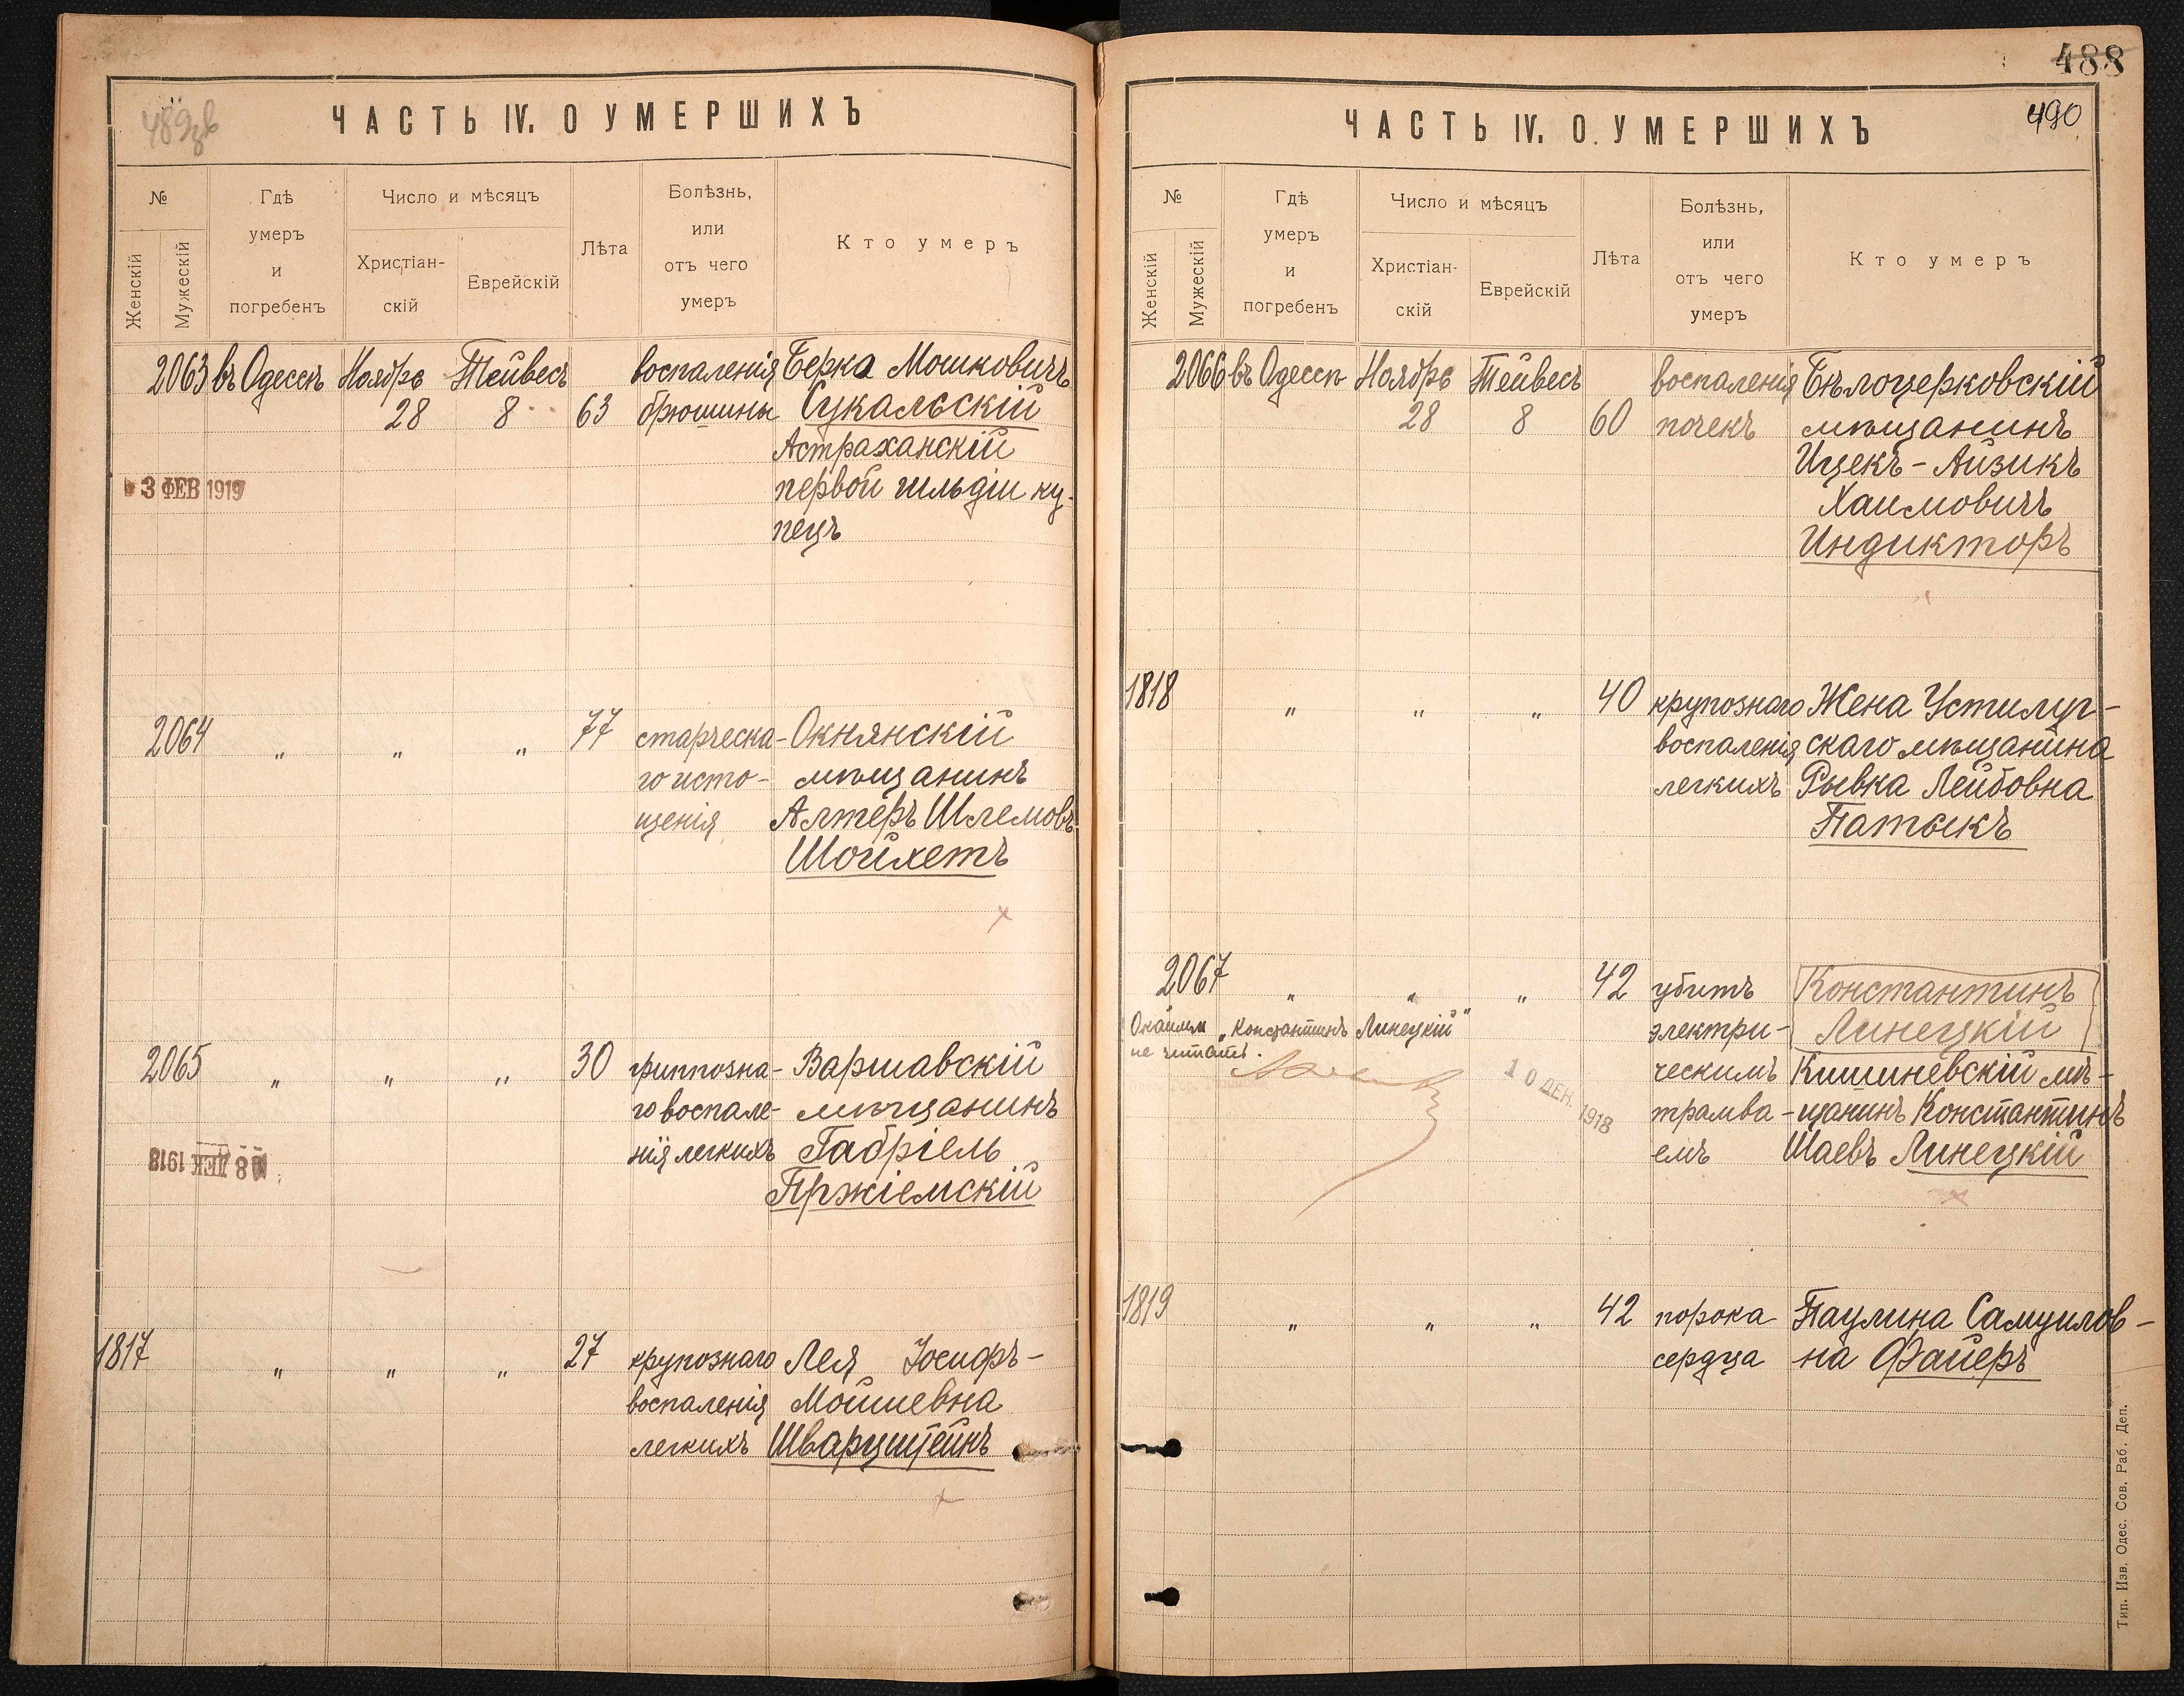 489об
ЧАСТЬ IV. О УМЕРШИХЪ
№
Женскій
Мужескій
Гдѣ
умеръ
и
погребенъ
Число и мѣсяцъ
Христіан-
скій
Еврейскій
Лѣта
Болѣзнь,
или
отъ чего
умеръ
Кто умеръ
2063 въ Одессѣ Ноября Тейвесъ воспаленія Берка Мошковичъ
28 8 63 брюшины Сукальскій
Астраханскій
3 ФЕВ 1919 первой гильдіи ку-
пецъ
2064 " " " 77 старческа- Окнянскій
го исто- мѣщанинъ
щенія Алтеръ Шлемовъ
Шойхетъ
2065 " " " 30 гриппозна- Варшавскій
го воспале- мѣщанинъ
нія легкихъ Габріель
18 ДЕК 1918
Пржіемскій
1817 " " " 27 крупознаго Лея Іосифъ-
воспаленія Мошневна
легкихъ Шварцштейнъ
488
490
ЧАСТЬ IV. О УМЕРШИХЪ
№
Женскій
Мужескій
Гдѣ
умеръ
и
погребенъ
Число и мѣсяцъ
Христіан-
скій
Еврейскій
Лѣта
Болѣзнь,
или
отъ чего
умеръ
Кто умеръ
2066 въ Одессѣ Ноября Тейвесъ воспаленія Бѣлоцерковскій
28 8 60 почекъ мѣщанинъ
Ицекъ-Айзикъ
Хаимовичъ
Индикторъ
1818 " " " 40 крупознаго Жена Устилуг-
воспаленія скаго мѣщанина
легкихъ Рывка Лейбовна
Патыкъ
2067 " " " 42 убитъ Константинъ
электри- Линецкій
"Константинъ Линецкій"
не читать.
10 ДЕК. 1918
ческимъ Кишиневскій мѣ-
трамва- щанинъ Константинъ
емъ Шаевъ Линецкій
1819 " " " 42 порока Паулина Самуилов-
сердца на Файеръ
Тип. Изв. Одес. Сов. Раб. Деп.